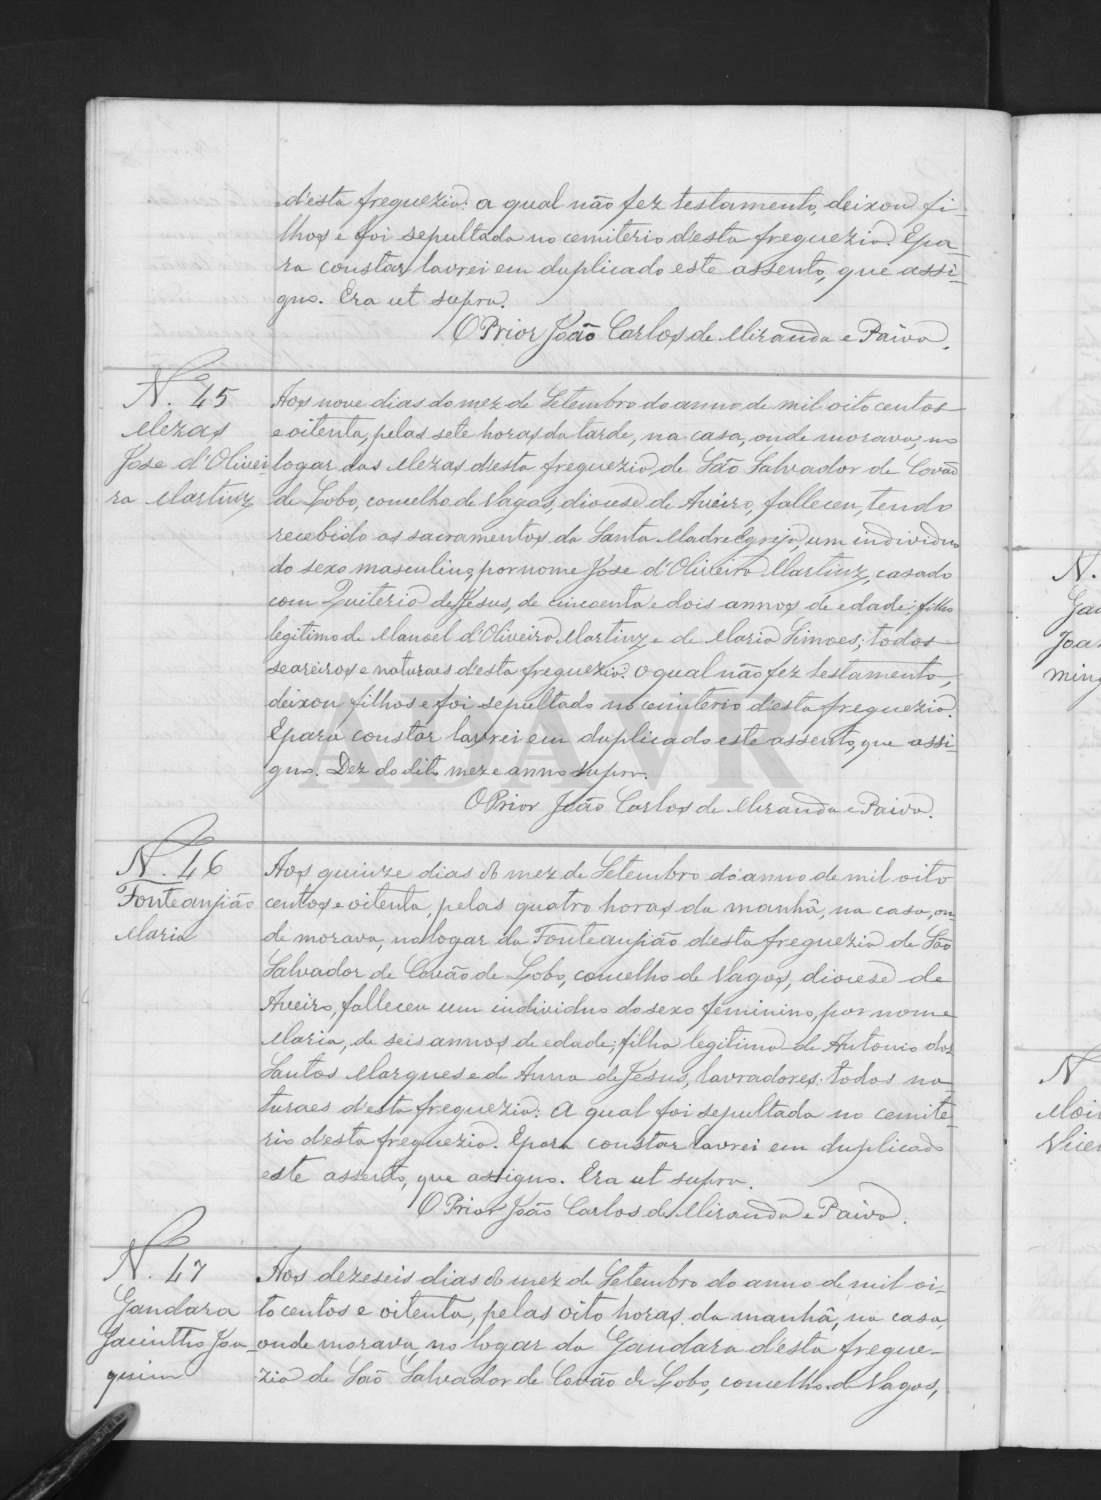 d'esta freguezia: a qual não fez testamento, deixou fi-
lhos e foi sepultada no cemiterio d'esta freguezia. E pa-
ra constar lavrei em duplicado este assento, que assi-
gno. Era ut supra.
O Prior João Carlos de Miranda e Paiva.
N. 45
Mezas
Jose d'Olivei
ra Martinz
Aos nove dias do mez de Setembro do anno de mil oito centos
e oitenta, pelas sete horas da tarde, na casa, onde morava, no
logar das Mezas d'esta freguezia de São Salvador de Covão
de Lobo, concelho de Vagos, diocese de Aveiro, falleceu, tendo
recebido os sacramentos da Santa Madre Egreja, um individuo
do sexo masculino, por nome Jose d'Oliveira Martinz, casado
com Quiteria de Jesus, de cincoenta e dois annos de edade; filho
legitimo de Manoel d'Oliveira Martinz e de Maria Simoes; todos
seareiros e naturaes d'esta freguezia: o qual não fez testamento,
deixou filhos e foi sepultado no cemiterio d'esta freguezia.
E para constar lavrei em duplicado este assento, que assi-
gno. Dez do dito mez e anno supra.
O Prior João Carlos de Miranda e Paiva.
N. 46
Fonteanjião
Maria
Aos quinze dias do mez de Setembro do anno de mil oito
centos e oitenta, pelas quatro horas da manhã, na casa, on-
de morava, no logar da Fonteanjião d'esta freguezia de São
Salvador de Covão de Lobo, concelho de Vagos, diocese de
Aveiro, falleceu um individuo do sexo feminino, por nome
Maria, de seis annos de edade; filha legitima de Antonio dos
Santos Marques e de Anna de Jesus, lavradores: todos na-
turaes d'esta freguezia: A qual foi sepultada no cemite-
rio d'esta freguezia. E para constar lavrei em duplicado
este assento, que assigno. Era ut supra.
O Prior João Carlos de Miranda e Paiva.
N. 47
Gandara
Jacintho Joa-
quim
Aos dezeseis dias do mez de Setembro do anno de mil oi-
to centos e oitenta, pelas oito horas da manhã, na casa,
onde morava, no logar da Gandara d'esta fregue-
zia de São Salvador de Covão de Lobo, concelho de Vagos,
ADAVR
N.
N